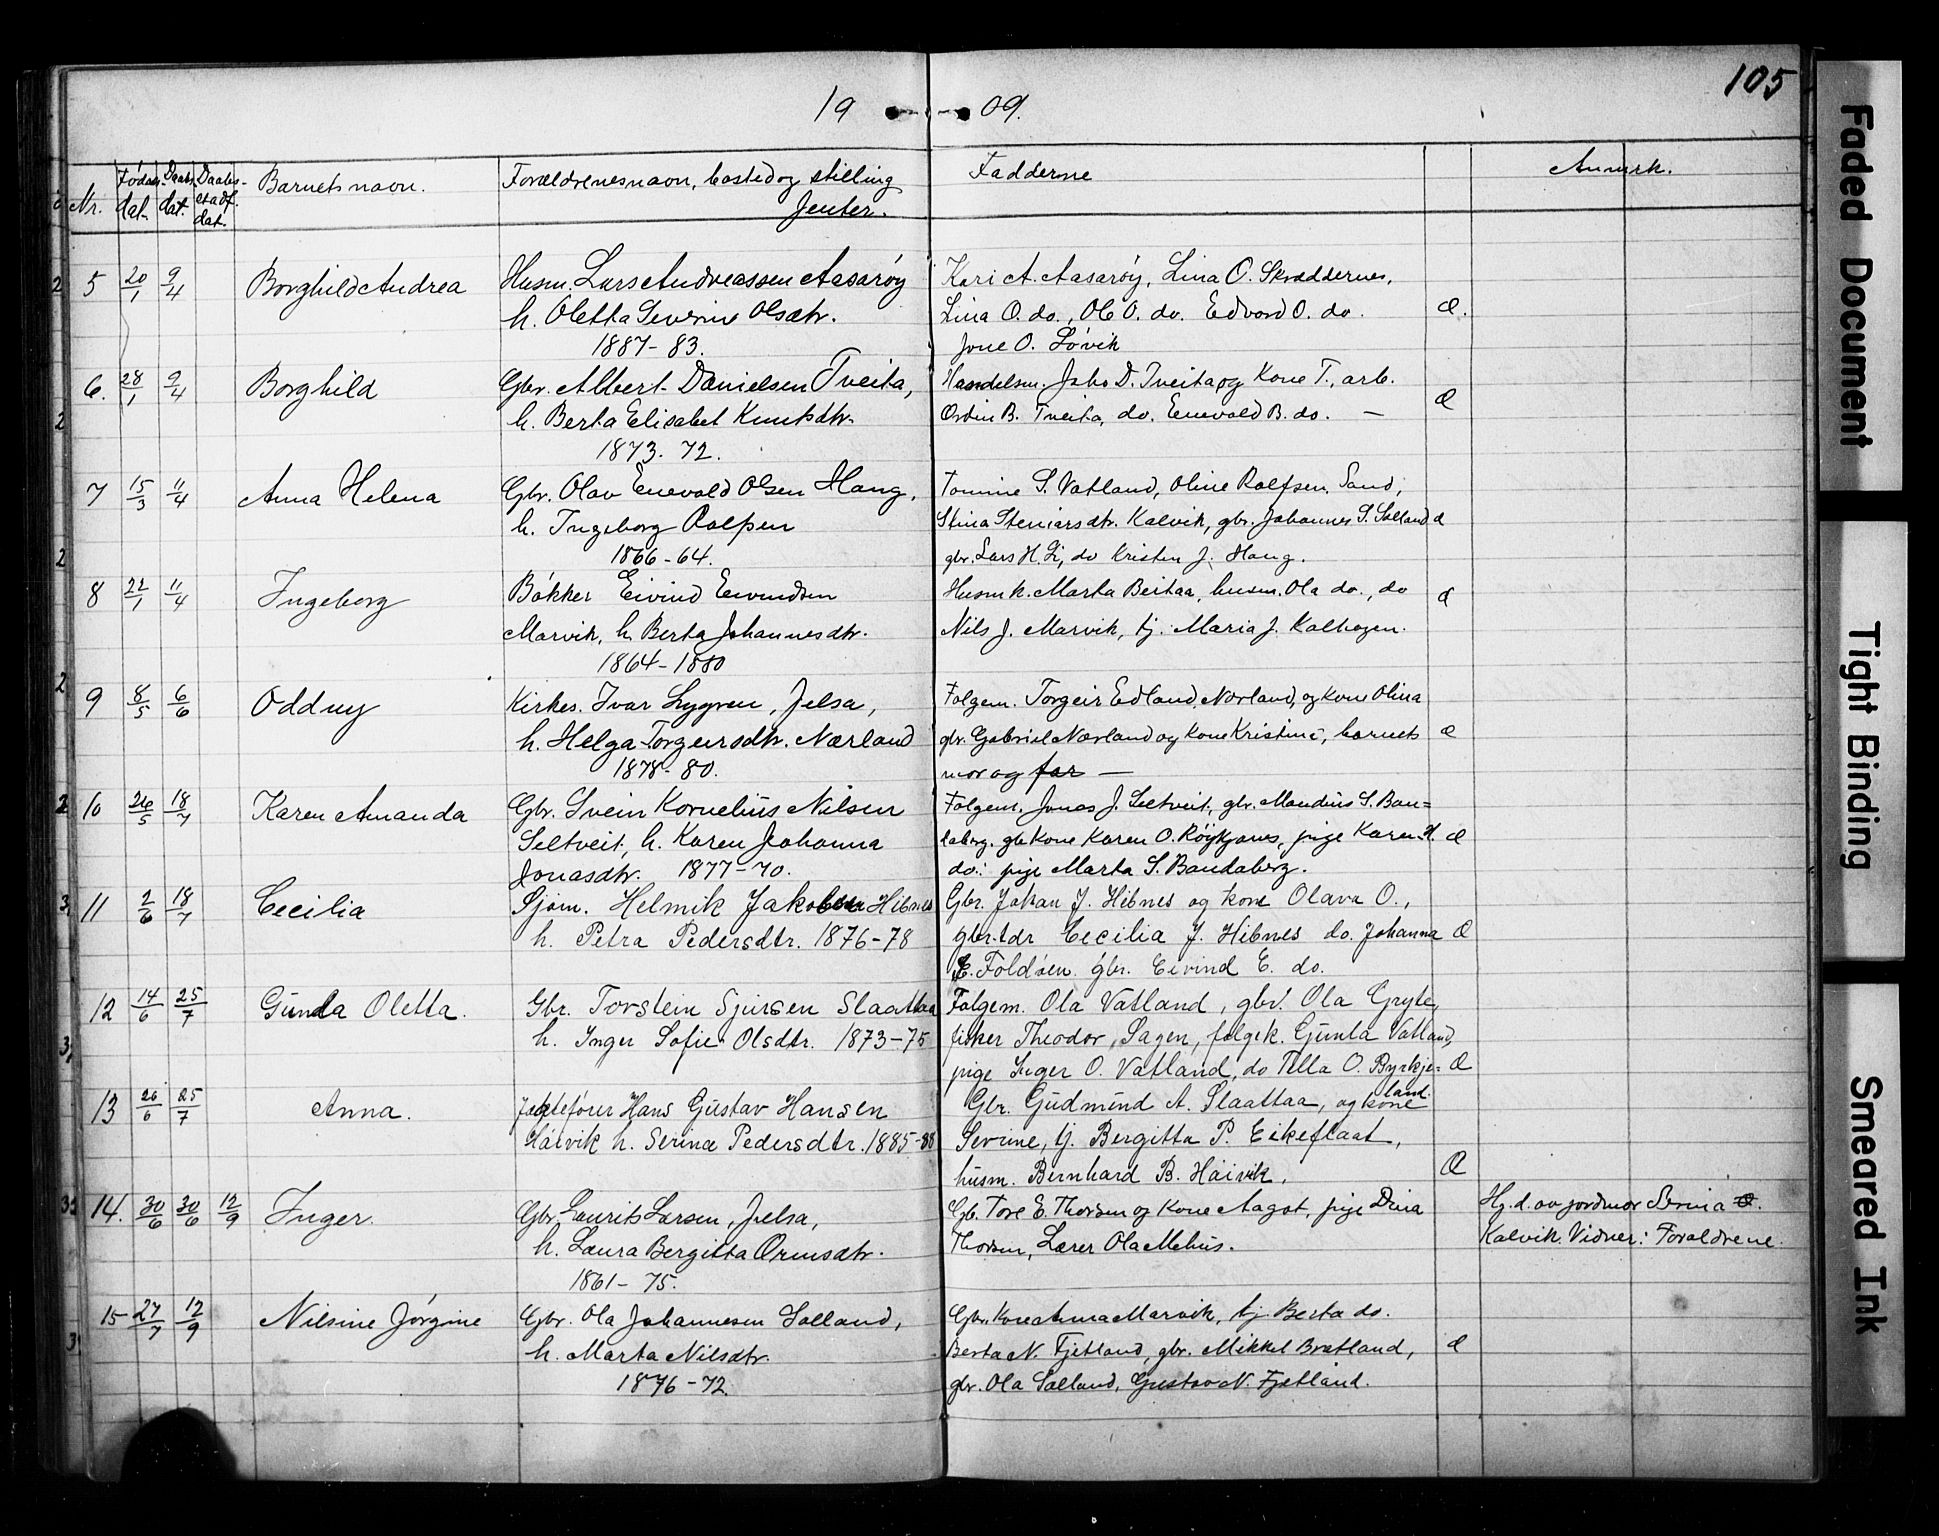 105
19 09.
Nr. Fødsels dat. Daabs dat. Daabs stadf. dat. Barnets navn. Forældrenes navn, bosted og stilling Fadderne Anmerk.
Jenter.
5 20/1 9/4 Borghild Andrea Husm. Lars Andreassen Aasarøy Kari A. Aasarøy, Lina O. Skraddernes,
h. Oletta Severine Olsdtr. Lina O. do., Ole O. do. Edvard O. do.
1887-83. Jone O. Løvik
6. 28/1 9/4 Borghild Gbr. Albert Danielsen Tveita, Handelsm. D. Tveita og Kone T., arb.
h. Berta Elisabet Knutsdtr. B. Tveita, do. Enevald B. do. —
1873. 72.
7 15/3 11/4 Anna Helena Gbr. Olav Enevald Olsen Hang, Tomine S. Vatland, Oline Rolfsen, Sand,
h. Ingeborg Stina Steniarsdtr. Kalvik, gbr. Johannes S.
1866-64. gbr. Lars H. Li, do Kristen J. Hang.
8 22/1 11/4 Ingeborg Bøkker Eivind Eivindsen Husmk. Marta husm. Ola do., do
Marvik, h. Berta Johannesdtr. Nils J. Marvik, tj. Maria J. Kalhagen.
1864-1880
9 8/5 6/6 Oddny Kirkes. Ivar Lygren, Jelsa, Folgem. Torgeir Edland, Nærland, og kone Olina
h. Helga Torgeirsdtr. Nærland gbr. Gabriel Nærland og Kone Kristine, barnets
1878-80. mor og far —
10 26/5 18/7 Karen Amanda Gbr. Svein Kornelius Nilsen Folgem. Jonas J. Seltveit, gbr. Maudius S. Ban=
Seltveit, h. Karen Johanna daberg. gbr kone Karen O. pige Karen H.
Jonasdtr. 1877-70. do. pige Marta S. Bandaberg.
11 2/6 18/7 Cecilia Sjøm. Helmik Jakobsen Hibnes Gbr. Johan J. Hibnes og kone Olava O.,
h. Petra Pedersdtr. 1876-78 gbr. tdr Cecilia J. Hibnes do. Johanna
E. Foldøen. gbr. Eivind E. do.
12 14/6 25/7 Gunla Oletta. Gbr. Torstein Sjursen Slaattaa Folgem. Ola Vatland, gbr. Ola Gryte,
h. Inger Sofie Olsdtr. 1873-75 fisker Theodor, Sagen, folgek. Gunla Vatland,
pige Inger O. Vatland, do Tella O. Byrkje=
land.
13 26/6 25/7 Anna. Jægtefører Hans Gustav Hansen Gbr. Gudmund A. Slaattaa, og kone
Haavik h. Serine Pedersdtr. 1885-88 Severine, tj. Bergitta P. Eikeflaat,
husm. Bernhard B. Haavik.
14. 30/6 30/6 12/9 Inger. Gbr. Laurits Larsen, Jelsa, Gb. Tore E. Thorsen og Kone Aagot, pige Dina Hj. d. av jordmor Serina
h. Laura Bergitta Ormsdtr. Thorsen, Lærer Ola Mehus. Kalvik. Vidner: Forældrene.
1861-75.
15 27/7 12/9 Nilsine Jørgine Gbr. Ola Johannesen Salland, Gbr. Kone Anna Marvik, tj. Berta do.
h. Marta Nilsdtr. Berta N. Fjetland, gbr. Mikkel Bratland,
1876-72. gbr. Ola Salland, Gustav N. Fjetland.
Faded Document
Tight Binding
Smeared Ink